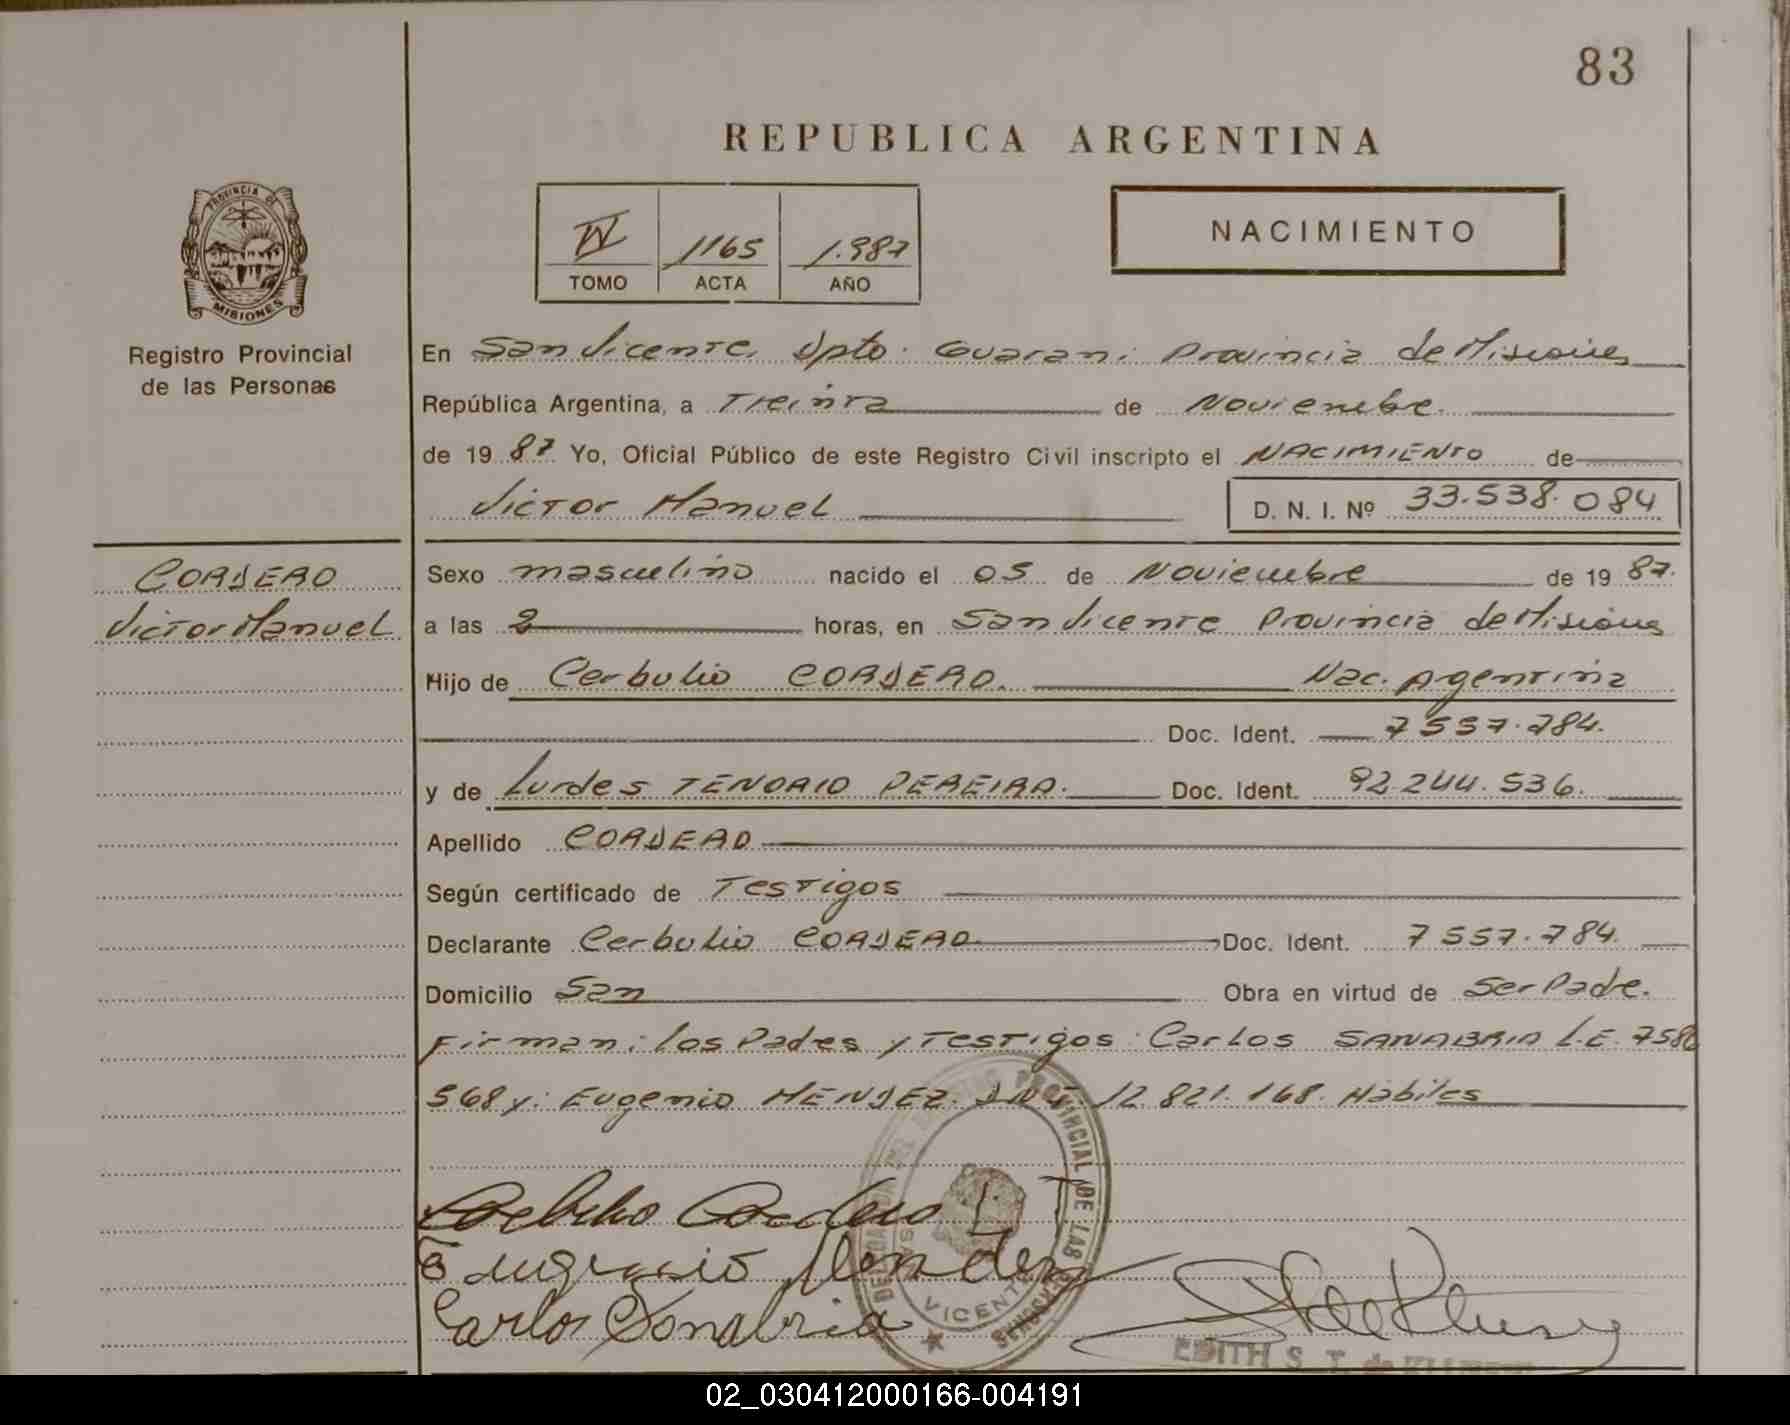 83
REPUBLICA ARGENTINA
PROVINCIA DE
MISIONES
Registro Provincial
de las Personas
IV 1165 1.987
TOMO ACTA AÑO
NACIMIENTO
En San Vicente Dpto. Guarani Provincia de Misiones
República Argentina, a Treinta de Noviembre.
de 19 87 Yo, Oficial Público de este Registro Civil inscripto el NACIMIENTO de
Victor Manuel D. N. I. Nº 33.538.084
CORDERO
Victor Manuel
Sexo masculino nacido el 05 de Noviembre de 19 87.
a las 2 horas, en San Vicente Provincia de Misiones
Hijo de Cerbulio CORDERO. Nac. Agentina
Doc. Ident. 7557.784.
y de Lurdes TENORIO PEREIRA. Doc. Ident. 92.244.536.
Apellido CORDERO
Según certificado de Testigos
Declarante Cerbulio CORDERO Doc. Ident. 7557.784.
Domicilio San Obra en virtud de Ser Padre.
Firman: los Padres y Testigos: Carlos SANABRIA L.E. 758
568 y: Eugenio MENDEZ. DNI. 12.821.168. Habiles
PROVINCIAL DE LAS
VICENTE
Eugenio Mendez
Carlos Sanabria
EDITH S. T. de
02_030412000166-004191